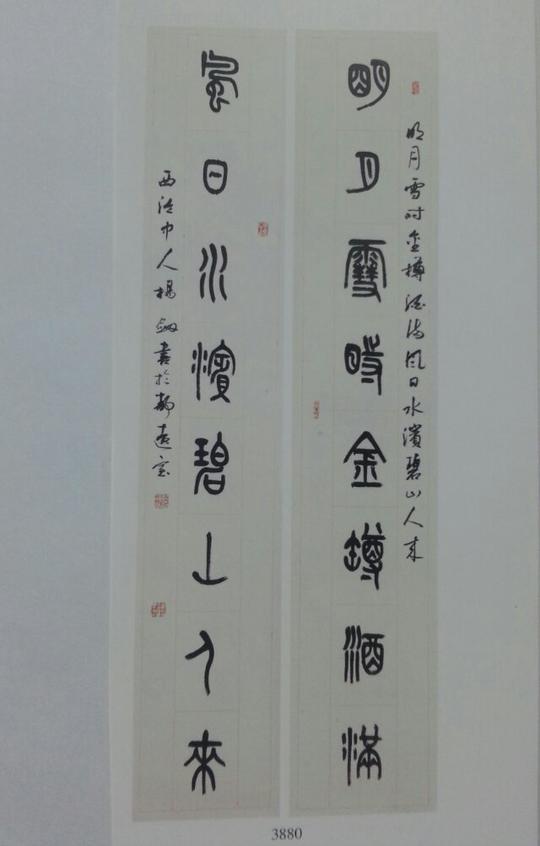 明月雪时金樽酒满风日水濱碧山人来
明月雪時金罇酒滿
風日水濱碧山人來
西泠中人楊劍書於靜遠室
3880